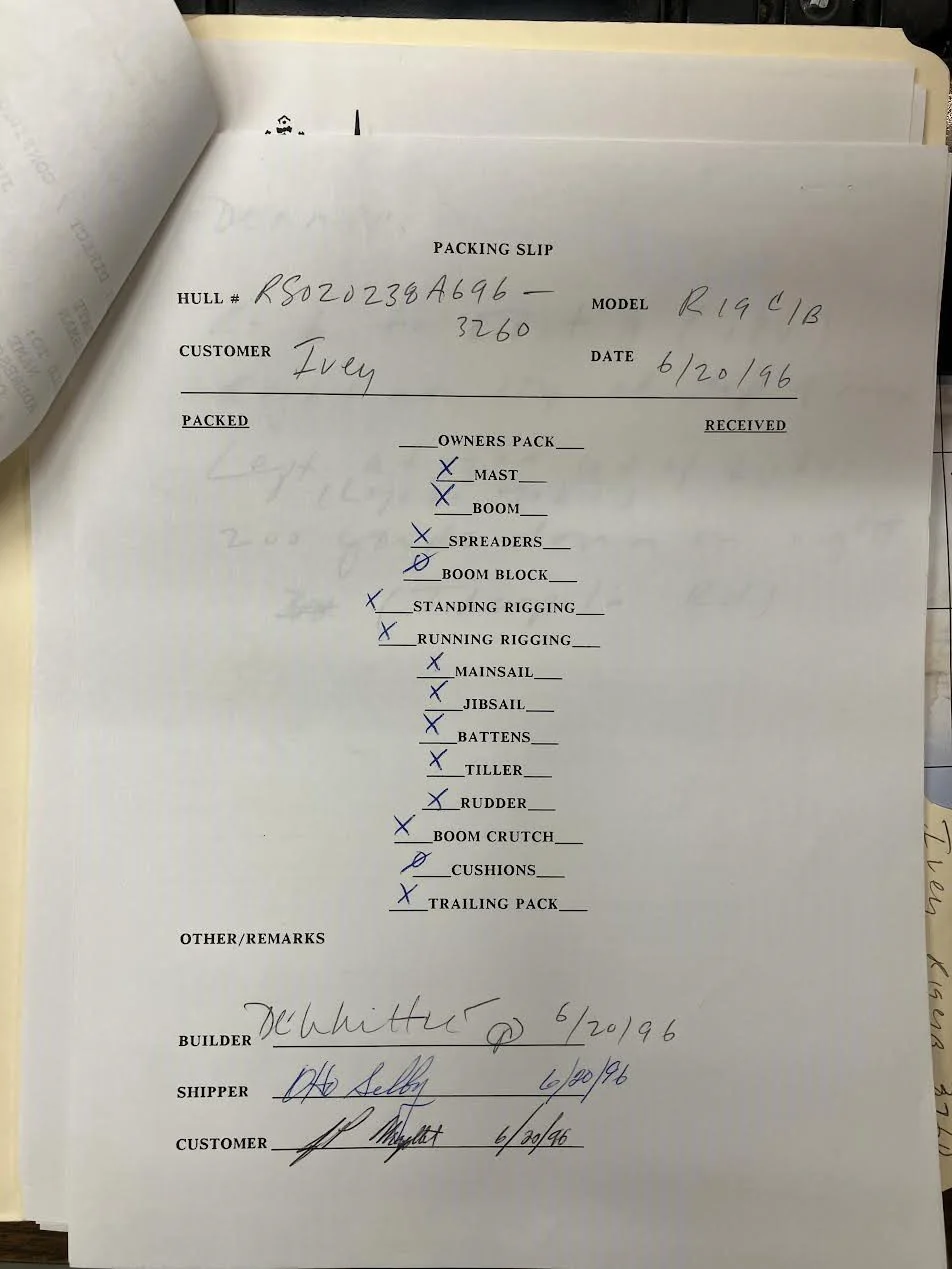 PACKING SLIP
HULL # RS020238A696 –
3260
MODEL R19 C/B
CUSTOMER Ivey
DATE 6/20/96
PACKED
RECEIVED
___OWNERS PACK___
X___MAST___
X___BOOM___
X___SPREADERS___
Ø___BOOM BLOCK___
X___STANDING RIGGING___
X___RUNNING RIGGING___
X___MAINSAIL___
X___JIBSAIL___
X___BATTENS___
X___TILLER___
X___RUDDER___
X___BOOM CRUTCH___
Ø___CUSHIONS___
X___TRAILING PACK___
OTHER/REMARKS
BUILDER 6/20/96
SHIPPER Otto Selby 6/20/96
CUSTOMER 6/20/96
Ivey R19CB 3260